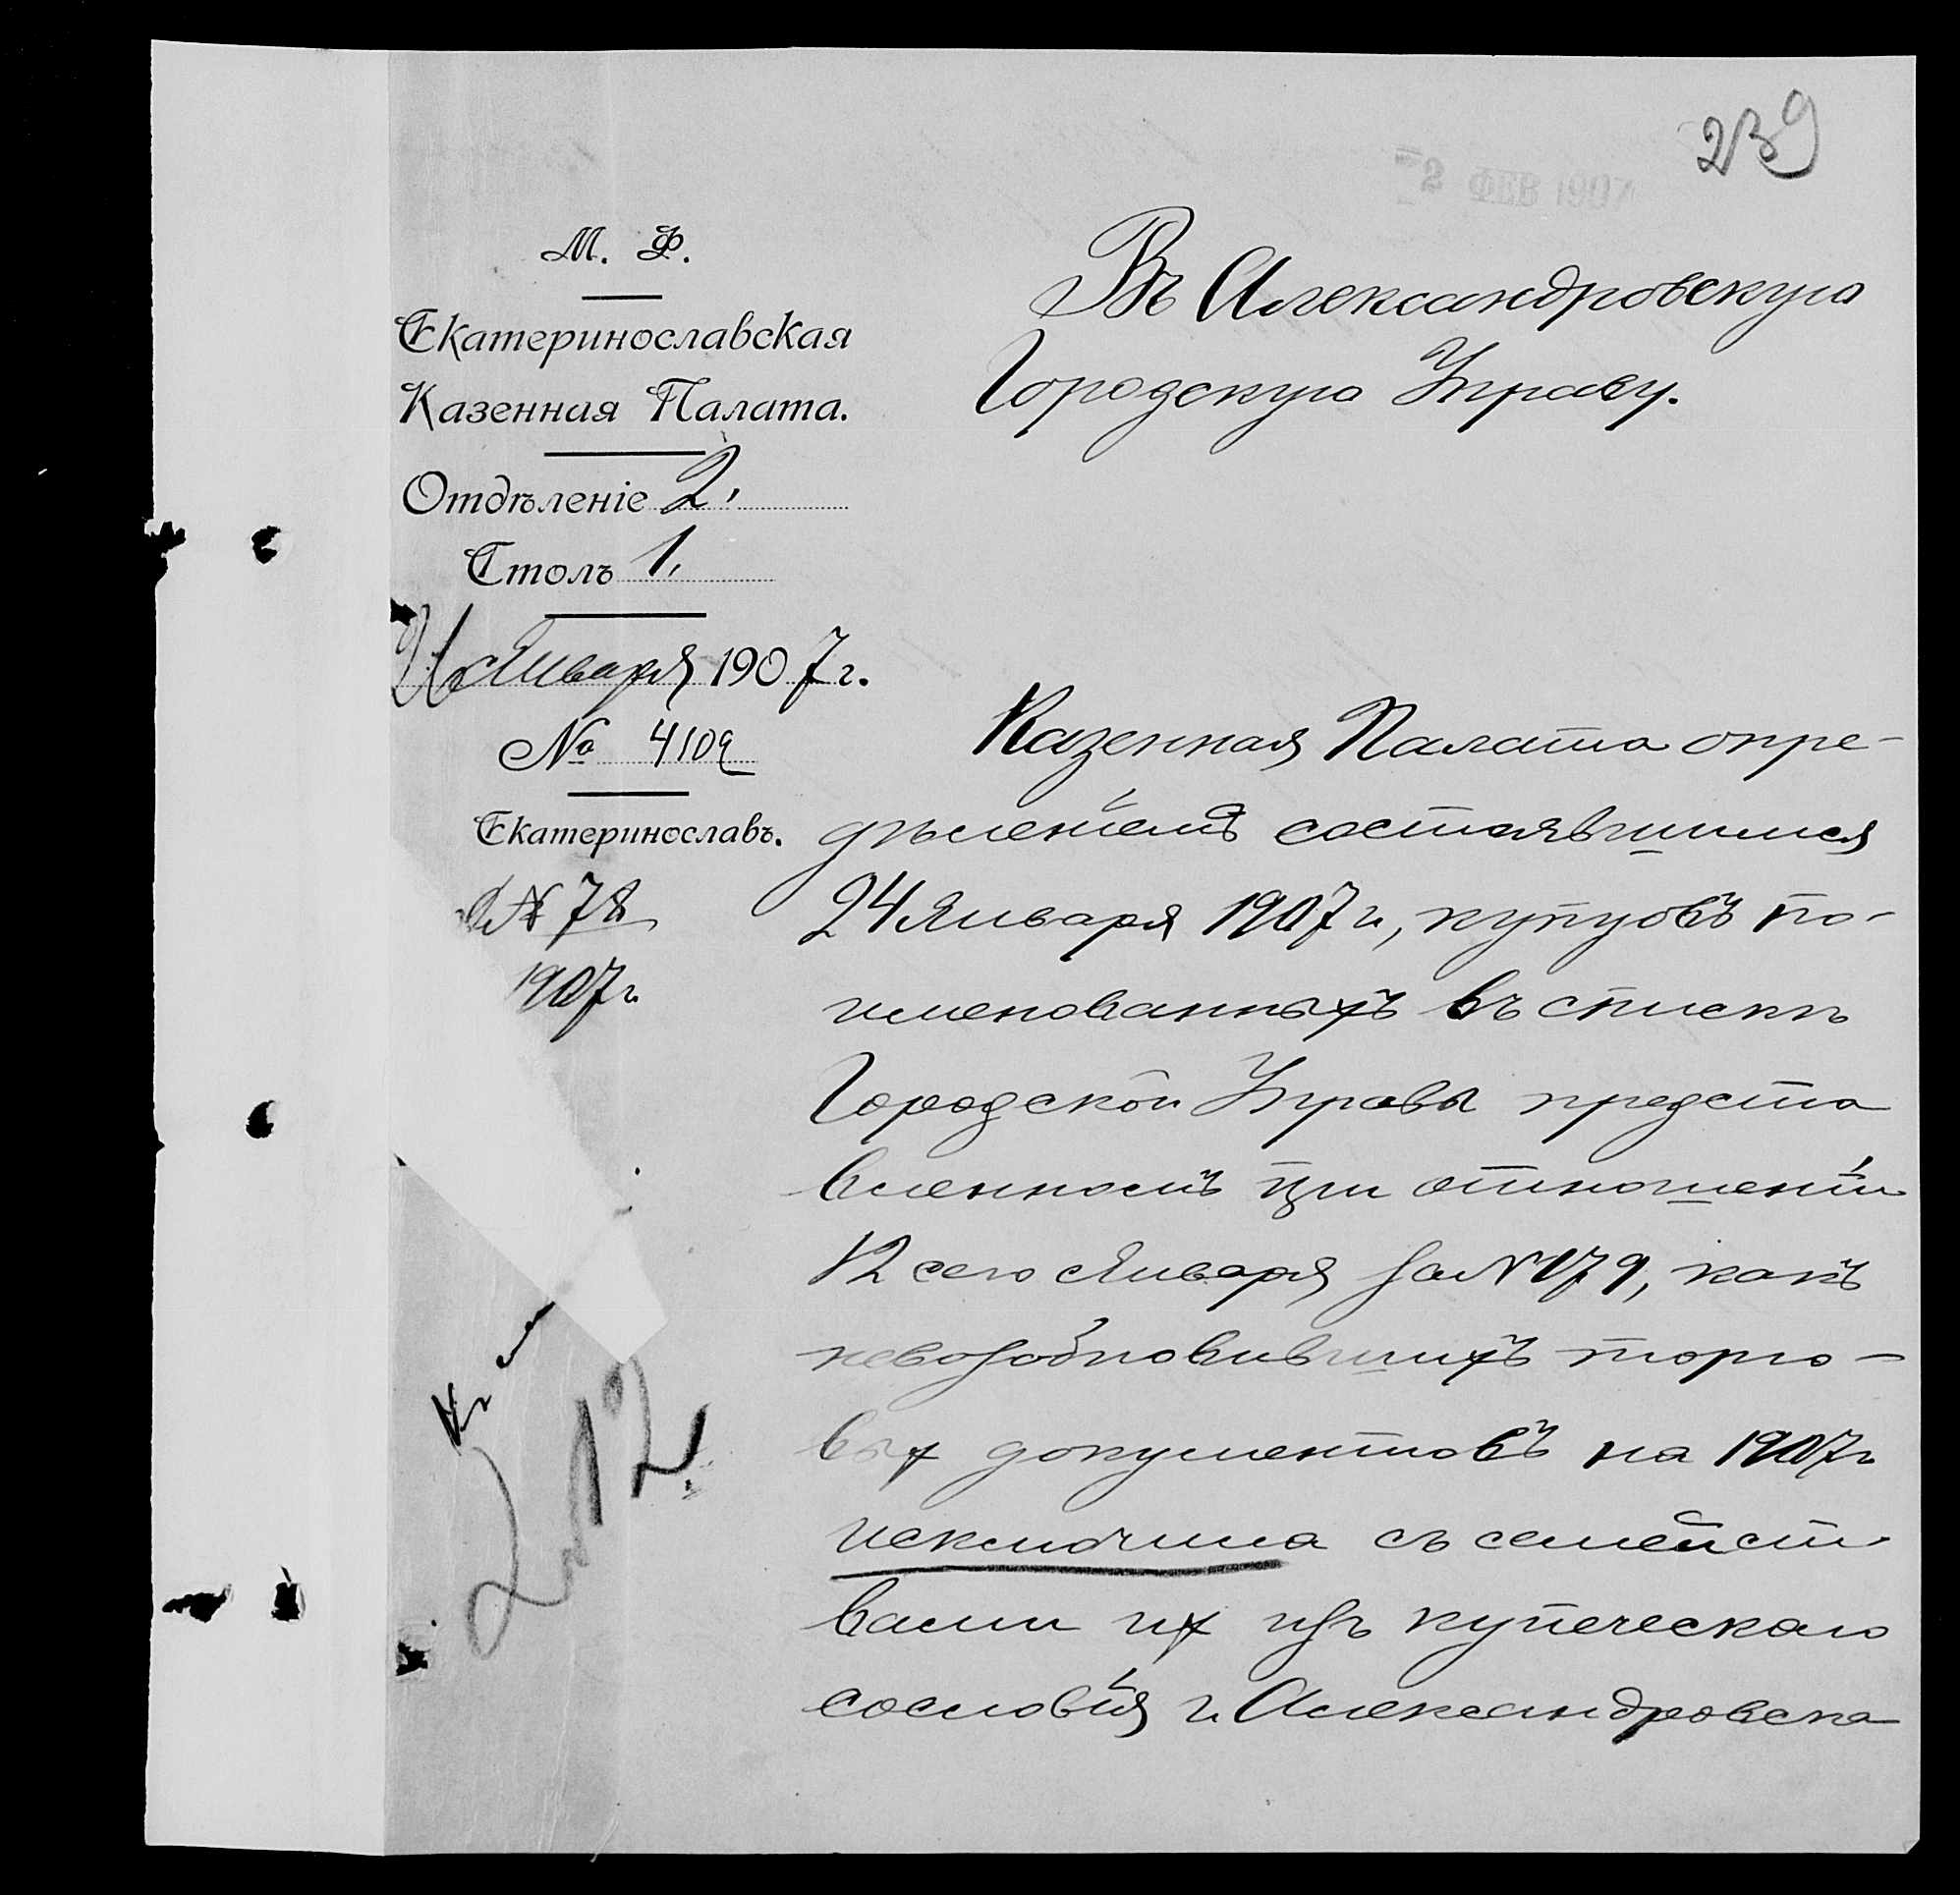 239
2 ФЕВ 1907
М. Ф.
Екатеринославская
Казенная Палата.
Отдѣленіе 2.
Столъ 1.
Января 1907 г.
№ 4109
Екатеринославъ.
№ 78
1907 г.
Въ Александровскую
Городскую Управу.
Казенная Палата опре-
дѣленіемъ состоявшимся
24 Января 1907 г., купцовъ по-
именованныхъ въ спискѣ
Городской Управы предста
вленномъ при отношеніи
12 сего Января за № 179, какъ
невозобновившихъ торго-
вых документовъ на 1907 г
исключила съ семейст
вами их изъ купеческаго
сословія г. Александровска